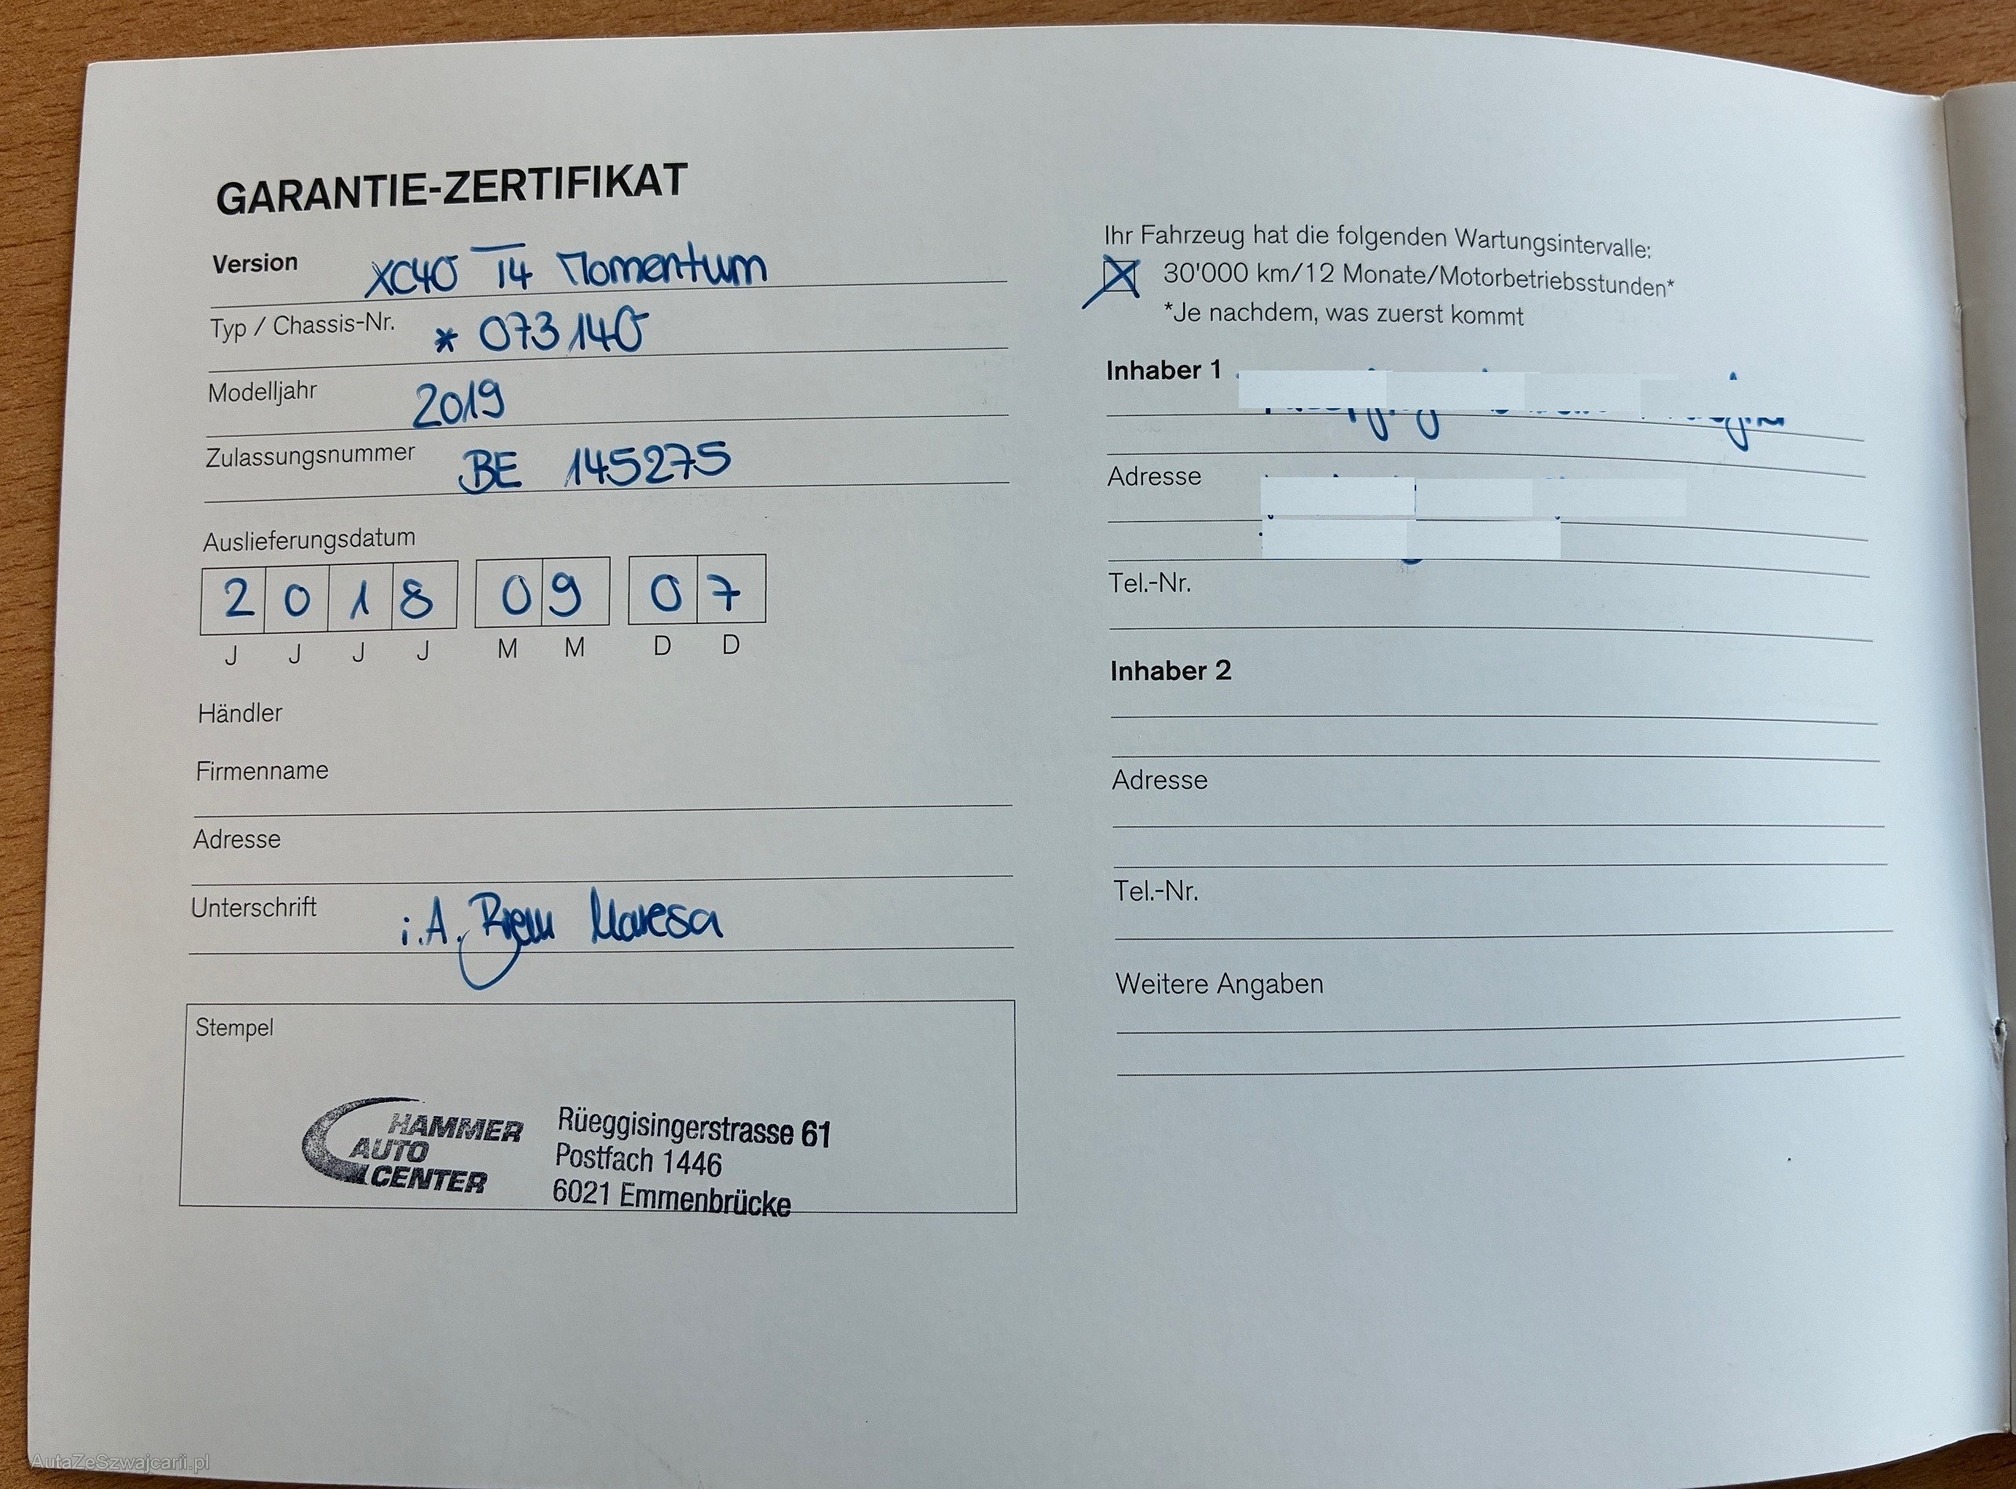 GARANTIE-ZERTIFIKAT
Version XC40 T4 Momentum
Typ / Chassis-Nr. * 073140
Modelljahr 2019
Zulassungsnummer BE 145275
Auslieferungsdatum
2 0 1 8 0 9 0 7
J J J J M M D D
Händler
Firmenname
Adresse
Unterschrift i.A.
Stempel
HAMMER
AUTO
CENTER
Rüeggisingerstrasse 61
Postfach 1446
6021 Emmenbrücke
Ihr Fahrzeug hat die folgenden Wartungsintervalle:
30'000 km/12 Monate/Motorbetriebsstunden*
*Je nachdem, was zuerst kommt
Inhaber 1
Adresse
Tel.-Nr.
Inhaber 2
Adresse
Tel.-Nr.
Weitere Angaben
AutaZeSzwajcarii.pl